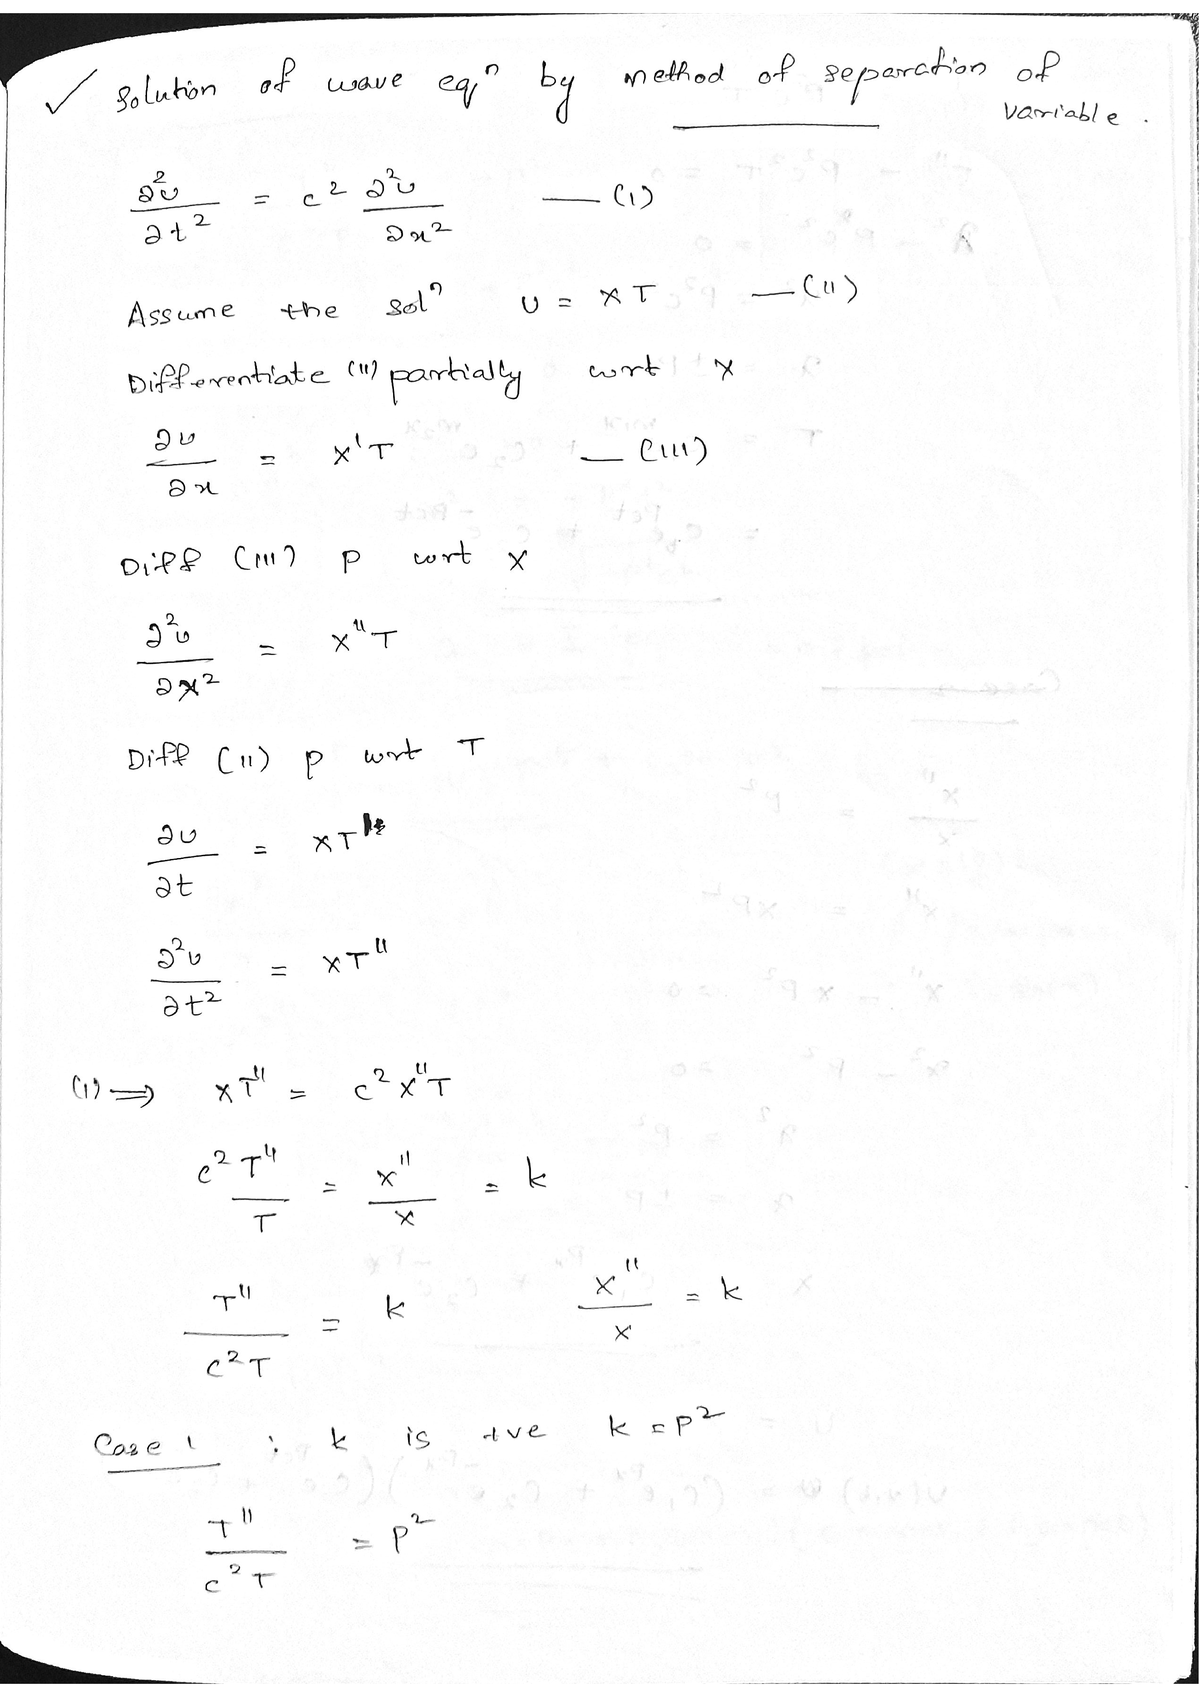 ✓ Solution of wave eqⁿ by method of separation of
variable.
∂²u/∂t² = c² ∂²u/∂x² — (I)
Assume the solⁿ U = XT — (II)
Differentiate (II) partially wrt x
∂u/∂x = X'T — (III)
Diff (III) p wrt x
∂²u/∂x² = X''T
Diff (II) p wrt T
∂u/∂t = XT'
∂²u/∂t² = XT''
(I) ⇒ XT'' = c² X''T
c² T''/T = X''/X = k
T''/c²T = k X''/X = k
Case 1 : k is +ve k = p²
T''/c²T = p²